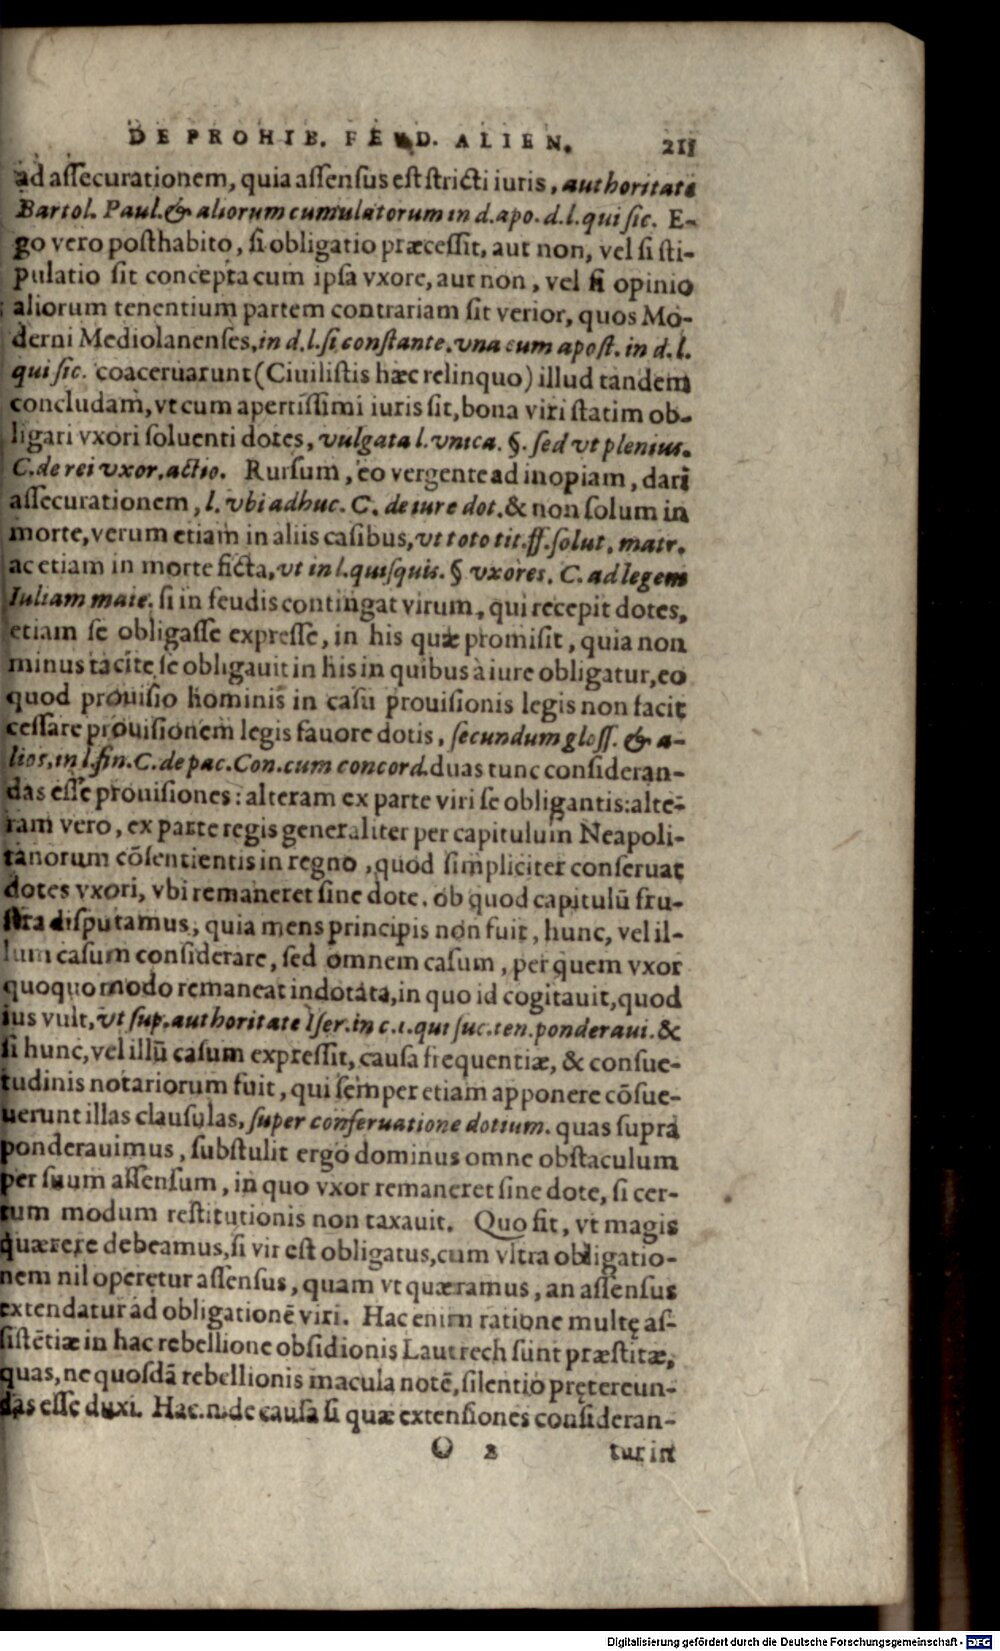 DE PROHIB. FEVD. ALIEN. 211
ad assecurationem, quia assensus est stricti iuris, authoritate
Bartol. Paul. & aliorum cumulatorum in d. apo. d. l. qui sic. E-
go vero posthabito, si obligatio præcessit, aut non, vel si sti-
pulatio sit concepta cum ipsa vxore, aut non, vel si opinio
aliorum tenentium partem contrariam sit verior, quos Mo-
derni Mediolanenses, in d. l. si constante. vna cum apost. in d. l.
qui sic. coaceruarunt (Ciuilistis hæc relinquo) illud tandem
concludam, vt cum apertissimi iuris sit, bona viri statim ob-
ligari vxori soluenti dotes, vulgata l. vnica. §. sed vt plenius.
C. de rei vxor. actio. Rursum, eo vergente ad inopiam, dari
assecurationem, l. vbi adhuc. C. de iure dot. & non solum in
morte, verum etiam in aliis casibus, vt toto tit. ff. solut. matr.
ac etiam in morte ficta, vt in l. quisquis. § vxores. C. ad legem
Iuliam maie. si in feudis contingat virum, qui recepit dotes,
etiam se obligasse expresse, in his quæ promisit, quia non
minus tacite se obligauit in his in quibus à iure obligatur, eo
quod prouisio hominis in casu prouisionis legis non facit
cessare prouisionem legis fauore dotis, secundum gloss. & a-
lios, in l. fin. C. de pac. Con. cum concord. duas tunc consideran-
das esse prouisiones: alteram ex parte viri se obligantis: alte-
ram vero, ex parte regis generaliter per capitulum Neapoli-
tanorum cōsentientis in regno, quod simpliciter conseruat
dotes vxori, vbi remaneret sine dote. ob quod capitulū fru-
stra disputamus, quia mens principis non fuit, hunc, vel il-
lum casum considerare, sed omnem casum, per quem vxor
quoquo modo remaneat indotata, in quo id cogitauit, quod
ius vult, vt sup. authoritate Iser. in c. 1. qui suc. ten. ponderaui. &
si hunc, vel illū casum expressit, causa frequentiæ, & consue-
tudinis notariorum fuit, qui semper etiam apponere cōsue-
uerunt illas clausulas, super conseruatione dotium. quas supra
ponderauimus, substulit ergo dominus omne obstaculum
per suum assensum, in quo vxor remaneret sine dote, si cer-
tum modum restitutionis non taxauit. Quo fit, vt magis
quærere debeamus, si vir est obligatus, cum vltra obligatio-
nem nil operetur assensus, quam vt quæramus, an assensus
extendatur ad obligationē viri. Hac enim ratione multę as-
sistētiæ in hac rebellione obsidionis Lautrech sunt præstitæ,
quas, ne quosdā rebellionis macula notē, silentio prętereun-
das esse duxi. Hac. n. de causa si quæ extensiones consideran-
O 2 tur in
Digitalisierung gefördert durch die Deutsche Forschungsgemeinschaft - DFG